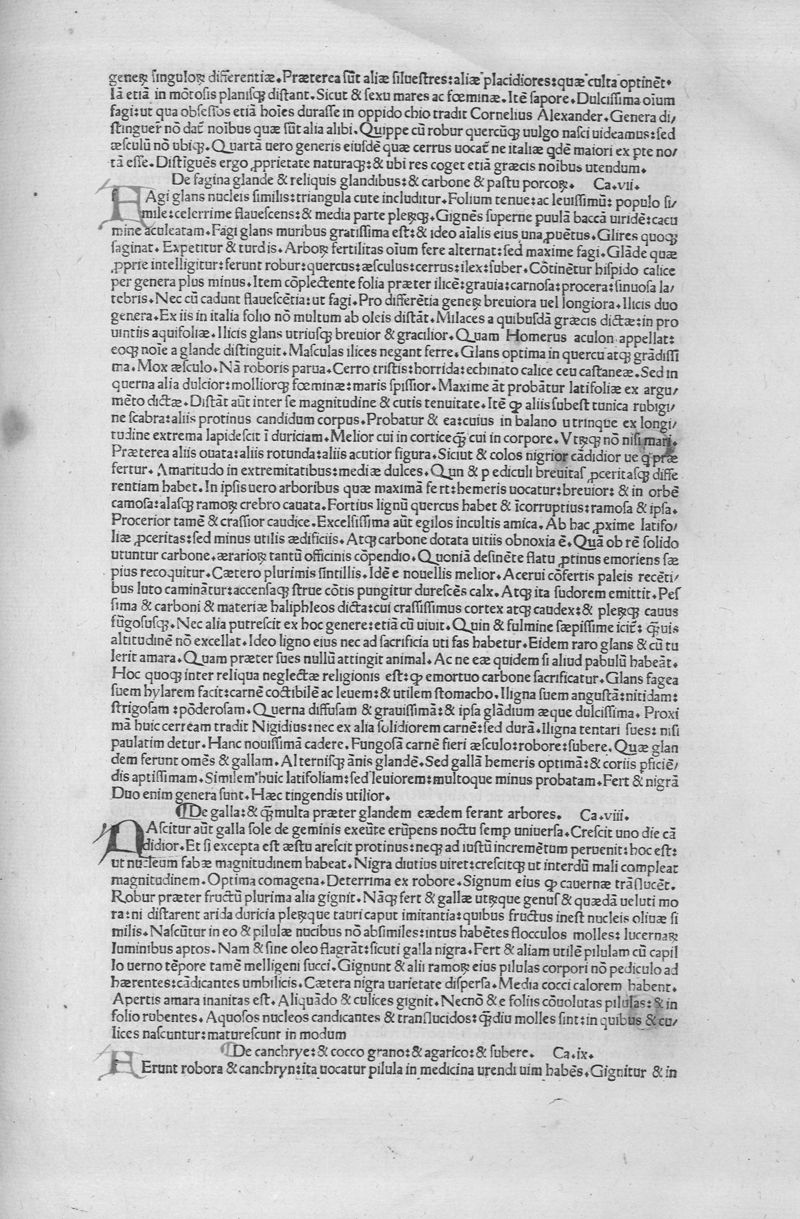 geneꝝ singuloꝝ differentiæ. Præterea sūt aliæ siluestres: aliæ placidiores: quæ culta optinēt.
Iā etiā in mōtosis planisq; distant. Sicut & sexu mares ac fœminæ. Itē sapore. Dulcissima oīum
fagi: ut qua obsessos etiā hoīes durasse in oppido chio tradit Cornelius Alexander. Genera di/
stinguer̄ nō dat̄ noībus quæ sūt alia alibi. Quippe cū robur quercūq; uulgo nasci uideamus: sed
æsculū nō ubiq;. Quartā uero generis eiusdē quæ cerrus uocat̄ ne italiæ qdē maiori ex pte no/
tā esse. Distiguēs ergo ꝓprietate naturaq;: & ubi res coget etiā græcis noībus utendum.
De fagina glande & reliquis glandibus: & carbone & pastu porcoꝝ. Ca.vii.
FAgi glans nucleis similis: triangula cute includitur. Folium tenue: ac leuissimū: populo si/
mile: celerrime flauescens: & media parte pleꝝq;. Gignēs superne puulā baccā uiridē: cacu
mine aculeatam. Fagi glans muribus gratissima est: & ideo aīalis eius una ꝓuētus. Glires quoq;
saginat. Expetitur & turdis. Arboꝝ fertilitas oīum fere alternat: sed maxime fagi. Glāde quæ
ꝓprie intelligitur: ferunt robur: quercus: æsculus: cerrus: ilex: suber. Cōtinētur hispido calice
per genera plus minus. Item cōplectente folia præter ilicē: grauia: carnosa: procera: sinuosa la/
tebris. Nec cū cadunt flauescētia: ut fagi. Pro differētia geneꝝ breuiora uel longiora. Ilicis duo
genera. Ex iis in italia folio nō multum ab oleis distāt. Milaces a quibusdā græcis dictæ: in pro
uintiis aquifoliæ. Ilicis glans utriusq; breuior & gracilior. Quam Homerus aculon appellat:
eoq; noīe a glande distinguit. Masculas ilices negant ferre. Glans optima in quercu atq; grādissi
ma. Mox æsculo. Nā roboris parua. Cerro tristis: horrida: echinato calice ceu castaneæ. Sed in
querna alia dulcior: molliorq; fœminæ: maris spissior. Maxime āt probātur latifoliæ ex argu/
mēto dictæ. Distāt aūt inter se magnitudine & cutis tenuitate. Itē ꝙ aliis subest tunica rubigi/
ne scabra: aliis protinus candidum corpus. Probatur & ea: cuius in balano utrinque ex longi/
tudine extrema lapidescit ī duriciam. Melior cui in cortice q̄ cui in corpore. Vtꝝq; nō nisi mari.
Præterea aliis ouata: aliis rotunda: aliis acutior figura. Siciut & colos nigrior cādidior ue q̄ præ
fertur. Amaritudo in extremitatibus: mediæ dulces. Qun & pediculi breuitas ꝓceritasq; diffe
rentiam habet. In ipsis uero arboribus quæ maximā fert: hemeris uocatur: breuior: & in orbē
camosa: alasq; ramoꝝ crebro cauata. Fortius lignū quercus habet & īcorruptius: ramosa & ipsa.
Procerior tamē & crassior caudice. Excelsissima aūt egilos incultis amica. Ab hac ꝓxime latifo/
liæ ꝓceritas: sed minus utilis ædificiis. Atq; carbone dotata uitiis obnoxia ē. Quā ob rē solido
utuntur carbone. ærarioꝝ tantū officinis cōpendio. Quoniā desinēte flatu ꝓtinus emoriens sæ
pius recoquitur. Cætero plurimis sintillis. Idē e nouellis melior. Acerui cōfertis paleis recēti/
bus luto camināt̄ur: accensaq; strue cōtis pungitur durescēs calx. Atq; ita sudorem emittit. Pes
sima & carboni & materiæ haliphleos dicta: cui crassissimus cortex atq; caudex: & pleꝝq; cauus
fūgosusq;. Nec alia putrescit ex hoc genere: etiā cū uiuit. Quin & fulmine sæpissime icit̄: q̄uis
altitudinē nō excellat. Ideo ligno eius nec ad sacrificia uti fas habetur. Eidem raro glans & cū tu
lerit amara. Quam præter sues nullū attingit animal. Ac ne eæ quidem si aliud pabulū habeāt.
Hoc quoq; inter reliqua neglectæ religionis est: ꝙ emortuo carbone sacrificatur. Glans fagea
suem hylarem facit: carnē coctibilē ac leuem: & utilem stomacho. Iligna suem angustā: nitidam:
strigosam: pōderosam. Querna diffusam & grauissimā: & ipsa glādium æque dulcissima. Proxi
mā huic cerream tradit Nigidius: nec ex alia solidiorem carnē: sed durā. Iligna tentari sues: nisi
paulatim detur. Hanc nouissimā cadere. Fungosā carnē fieri æsculo: robore: subere. Quæ glan
dem ferunt omēs & gallam. Alternisq; ānis glandē. Sed gallā hemeris optimā: & coriis pficiē/
dis aptissimam. Similem huic latifoliam: sed leuiorem: multoque minus probatam. Fert & nigrā
Duo enim genera sunt. Hæc tingendis utilior.
¶De galla: & q̄ multa præter glandem eædem ferant arbores. Ca.viii.
NAscitur aūt galla sole de geminis exeūte erūpens noctu semp uniuersa. Crescit uno die cā
didior. Et si excepta est æstu arescit protinus: neq; ad iustū incremētum peruenit: hoc est:
ut nucleum fabæ magnitudinem habeat. Nigra diutius uiret: crescitq; ut interdū mali compleat
magnitudinem. Optima comagena. Deterrima ex robore. Signum eius ꝙ cauernæ trāslucēt.
Robur præter fructū plurima alia gignit. Nāq; fert & gallæ utꝝque genus & quædā ueluti mo
ra: ni distarent arida duricia pleꝝque tauri caput imitantia: quibus fructus inest nucleis oliuæ si
milis. Nascūtur in eo & pilulæ nucibus nō absimiles: intus habētes flocculos molles: lucernaꝝ
luminibus aptos. Nam & sine oleo flagrāt: sicuti galla nigra. Fert & aliam utilē pilulam cū capil
lo uerno tēpore tamē melligeni succi. Gignunt & alii ramoꝝ eius pilulas corpori nō pediculo ad
hærentes: cādicantes umbilicis. Cætera nigra uarietate dispersa. Media cocci calorem habent.
Apertis amara inanitas est. Aliquādo & culices gignit. Necnō & e foliis cōuolutas pilulas: & in
folio rubentes. Aquosos nucleos candicantes & translucidos: q̄diu molles sint: in quibus & cu/
lices nascuntur: maturescunt in modum
¶De canchrye: & cocco grano: & agarico: & subere. Ca.ix.
FErunt robora & canchryn: ita uocatur pilula in medicina urendi uim habēs. Gignitur & in